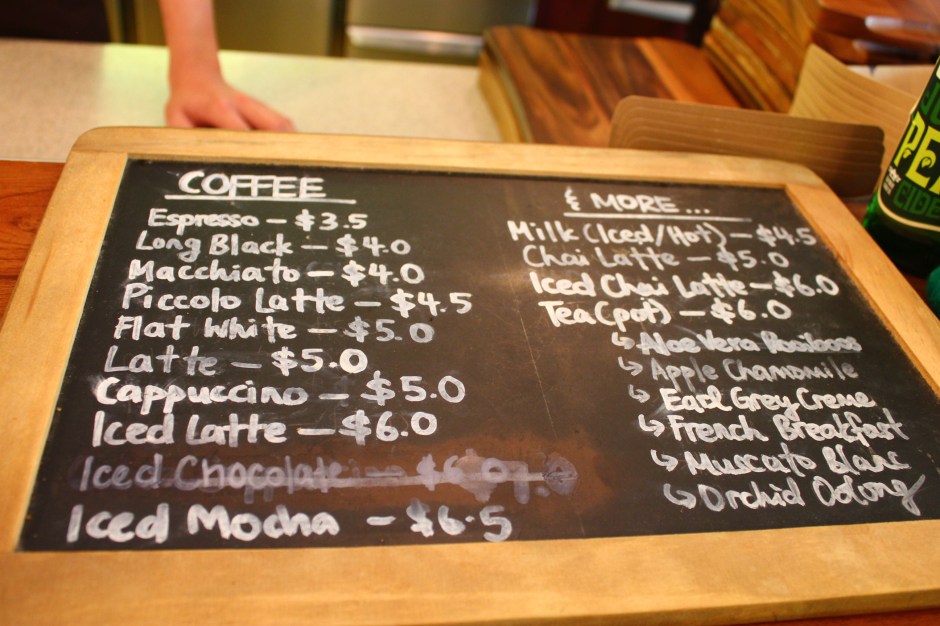 COFFEE
Espresso - $3.5
Long Black - $4.0
Macchiato - $4.0
Piccolo Latte - $4.5
Flat White - $5.0
Latte - $5.0
Cappuccino - $5.0
Iced Latte - $6.0
Iced Chocolate - $6.0
Iced Mocha - $6.5
& MORE...
Milk (Iced/Hot) - $4.5
Chai Latte - $5.0
Iced Chai Latte - $6.0
Tea (pot) - $6.0
↳ Aloe Vera Rooibos
↳ Apple Chamomile
↳ Earl Grey Creme
↳ French Breakfast
↳ Muscato Blanc
↳ Orchid Oolong
CIDE